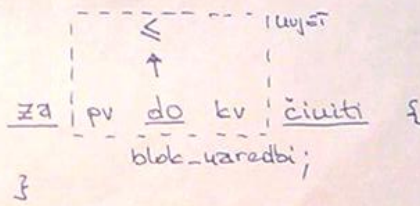 ≤ uvjet
za pv do kv činiti {
blok_naredbi;
}